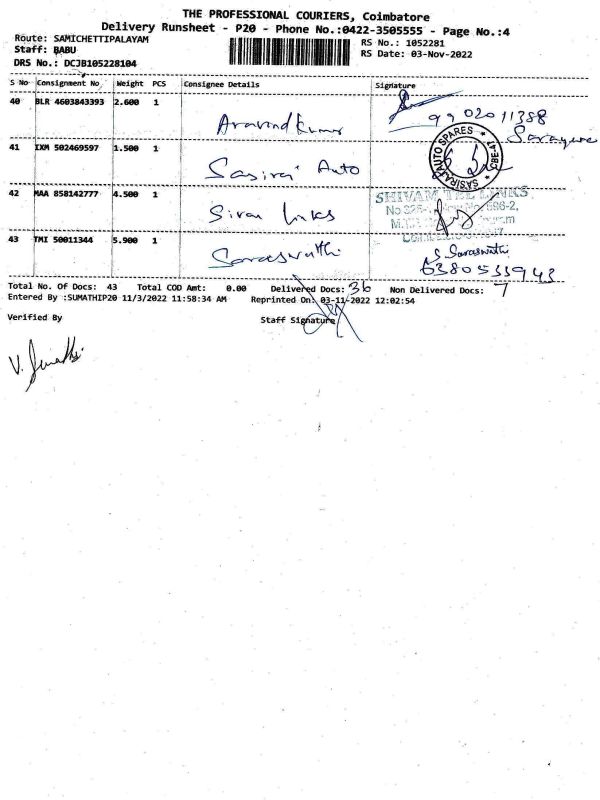 THE PROFESSIONAL COURIERS, Coimbatore
Delivery Runsheet - P20 - Phone No.:0422-3505555 - Page No.:4
Route: SAMICHETTIPALAYAM
RS No.: 1052281
Staff: BABU
RS Date: 03-Nov-2022
DRS No.: DCJB105228104
S No Consignment No Weight PCS Consignee Details Signature
40 BLR 4603843393 2.600 1 Aravind kumar 9902011388
41 IXM 502469597 1.500 1 Sasiraj Auto
SASIRAJ AUTO SPARES * CBE-47 *
42 MAA 858142777 4.500 1 Sivam links
SHIVAM TEL LINKS
43 TMI 50011344 5.900 1 Saraswathi S. Saraswathi
6380533943
Total No. Of Docs: 43 Total COD Amt: 0.00 Delivered Docs: 36 Non Delivered Docs: 7
Entered By :SUMATHIP20 11/3/2022 11:58:34 AM Reprinted On: 03-11-2022 12:02:54
Verified By
Staff Signature